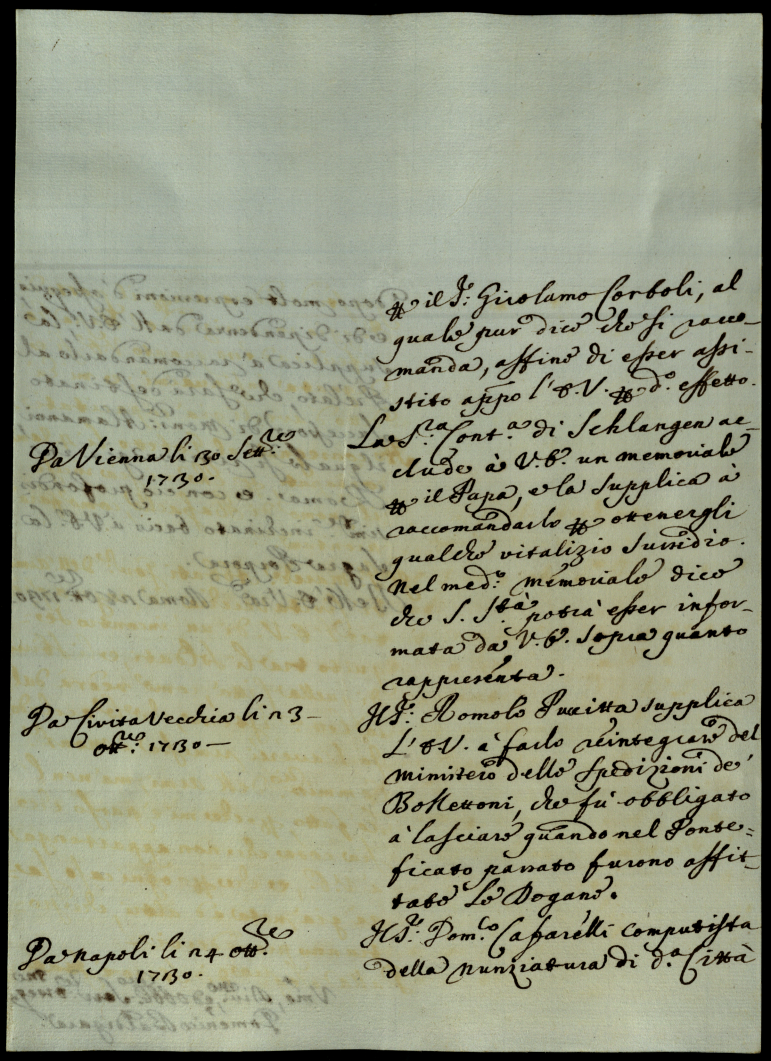 p il Sr: Girolamo Corboli, al
quale pur dice che si racco-
manda, affine di esser assi-
stito appo l'E.V. p do. effetto.
Da Vienna li 30 Settre:
1730.
La Sra. Conta. di Schlangen ac-
clude à V.E. un memoriale
p il Papa, e la supplica à
raccomandarlo p ottenergli
qualche vitalizio sussidio.
Nel medo. memoriale dice
che S. Stà potrà esser infor-
mata da V.E. sopra quanto
rappresenta.
Da Civita Vecchia li 23
ottre: 1730
Il Sr: Romolo Puccitta supplica
L'E.V. à farlo reintegrare del
ministero delle spedizioni de'
Bollettoni, che fù obbligato
à lasciare quando nel Ponte=
ficato passato furono affit-
tate le Dogane.
Da Napoli li 24 ottre.
1730.
Il Sr: Domco. Cafarelli computista
della nunziatura di da. Città